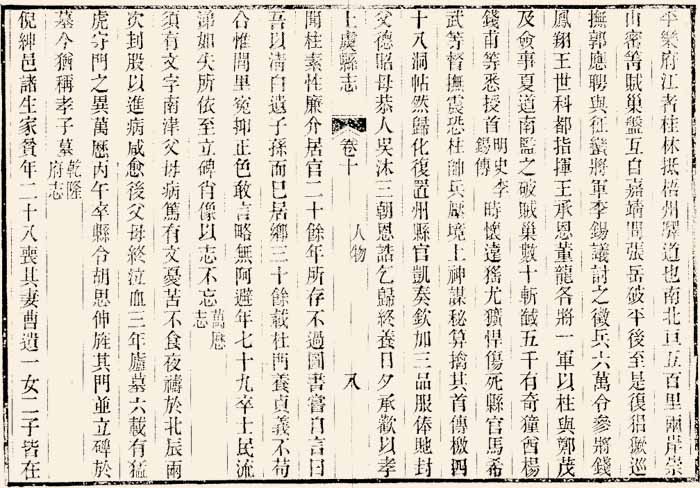 平樂府江者桂林抵梧州驛道也南北亘五百里兩岸崇
山密箐賊巢盤互自嘉靖間張岳破平後至是復猖獗巡
撫郭應聘與征蠻將軍李錫議討之徵兵六萬令參將錢
鳳翔王世科都指揮王承恩董龍各將一軍以柱與鄭茂
及僉事夏道南監之破賊巢數十斬馘五千有奇獞酋楊
錢甫等悉授首明史李錫傳時懷遠猺尤獷悍傷死縣官馬希
武等督撫震恐柱帥兵壓境上神謀秘算擒其首傳檄四
十八洞帖然歸化復置州縣官凱奏欽加三品服俸貤封
父德昭母恭人吳沐三朝恩誥乞歸終養日夕承歡以孝
上虞縣志 卷十 人物 八
聞柱素性廉介居官二十餘年所存不過圖書嘗自言曰
吾以清白遺子孫而已居鄉三十餘載杜門養貞義不苟
合惟閭里寃抑正色敢言略無阿避年七十九卒士民流
涕如失所依至立碑肖像以志不忘萬歷志
須有文字南津父母病篤有文憂苦不食夜禱於北辰兩
次刲股以進病咸愈後父母終泣血三年廬墓六載有猛
虎守門之異萬歷丙午卒縣令胡思伸旌其門並立碑於
墓今猶稱孝子墓乾隆府志
倪紳邑諸生家貧年二十八喪其妻曹遺一女二子皆在